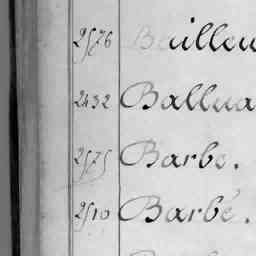 2576 Bailleu
2432 Ballua
2575 Barbe.
2510 Barbé.